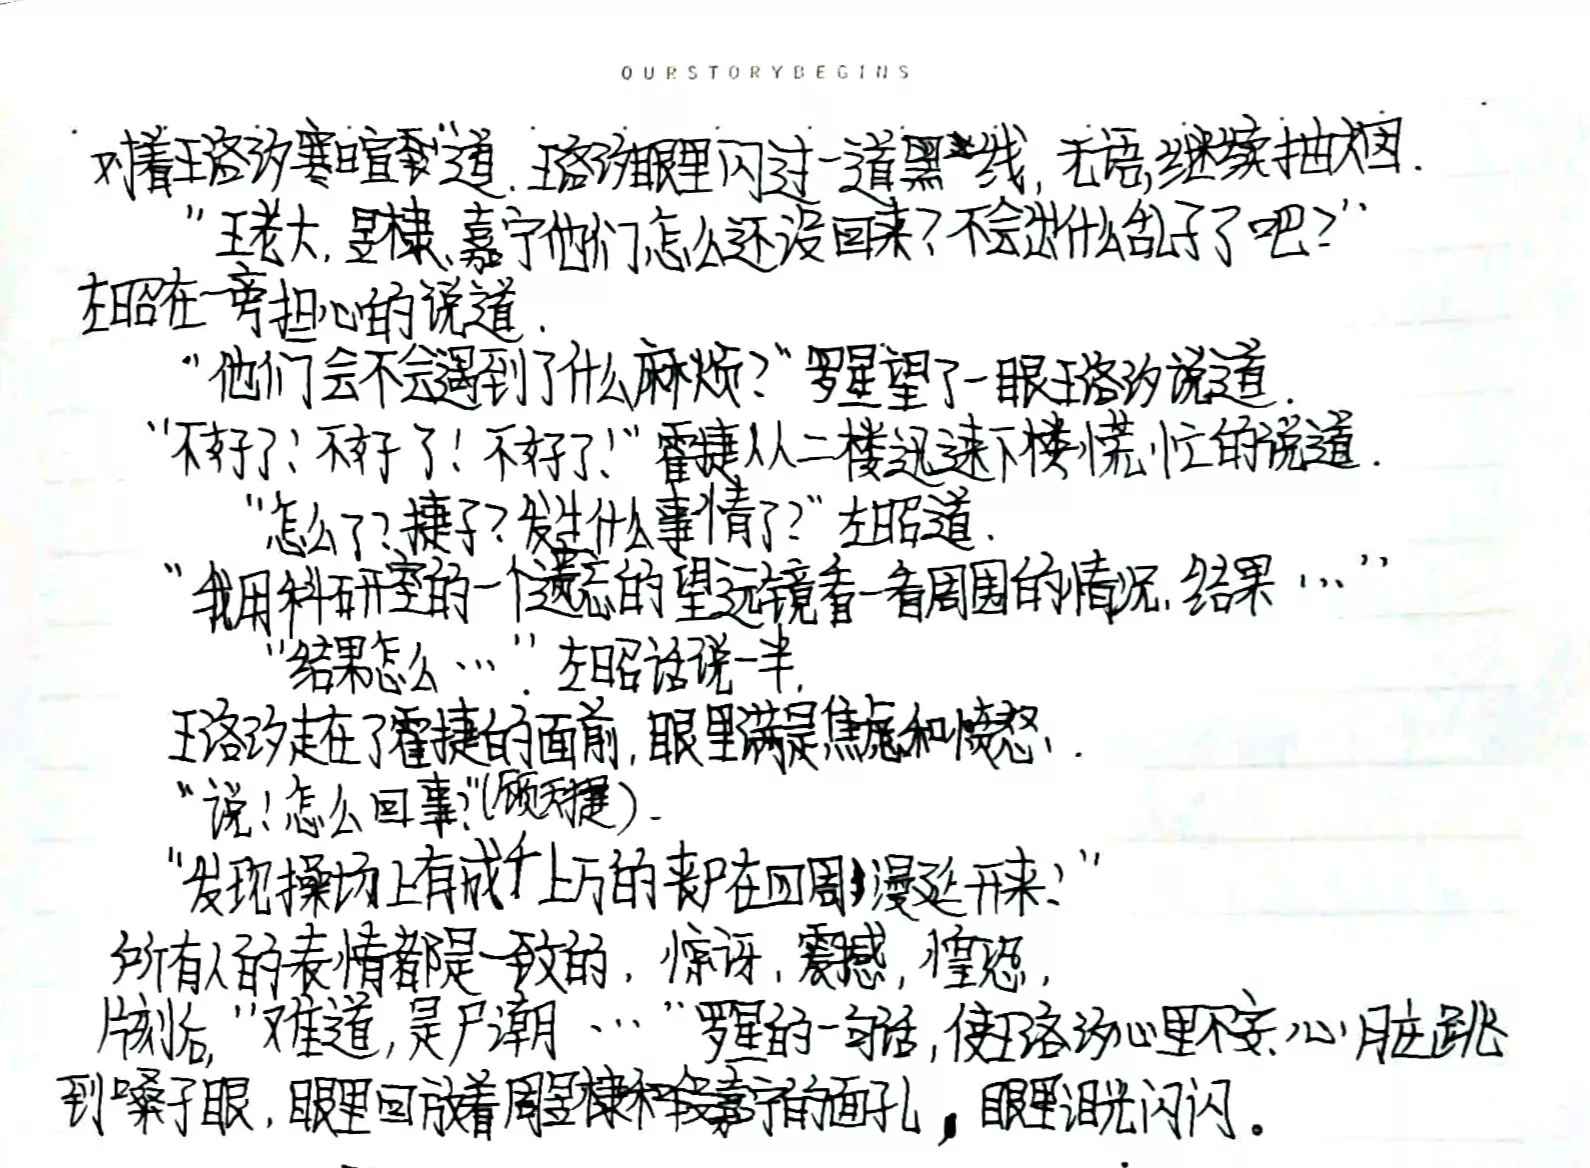 OURSTORYBEGINS
对着王洛汐寒暄到"道.王洛汐眼里闪过一道黑线,无语,继续抽烟.
"王老大,昱棣、嘉宁他们怎么还没回来?不会出什么乱子了吧?"
左昭在一旁担心的说道.
"他们会不会遇到了什么麻烦?"罗星望了一眼王洛汐说道.
"不好了!不好了!不好了!"霍捷从二楼迅速下楼慌忙的说道.
"怎么了?捷子?发生什么事情了?"左昭道.
"我用科研室的一个遗忘的望远镜看一看周围的情况,结果…"
"结果怎么…".左昭话说一半,
王洛汐走在了霍捷的面前,眼里满是焦虑和愤怒,.
"说!怎么回事?"(顾天捷).
"发现操场上有成千上万的丧尸在四周漫延开来!"
所有人的表情都是一致的,惊讶,震撼,惶恐,
片刻后,"难道,是尸潮…"罗星的一句话,使王洛汐心里不安、心脏跳
到嗓子眼,眼里回放着周昱棣和段嘉宁的面孔,眼里泪光闪闪。